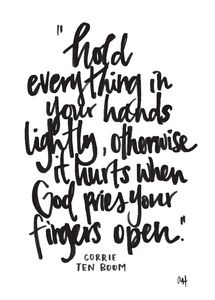 "hold
everything in
your hands
lightly, otherwise
it hurts when
God pries your
fingers open."
CORRIE
TEN BOOM